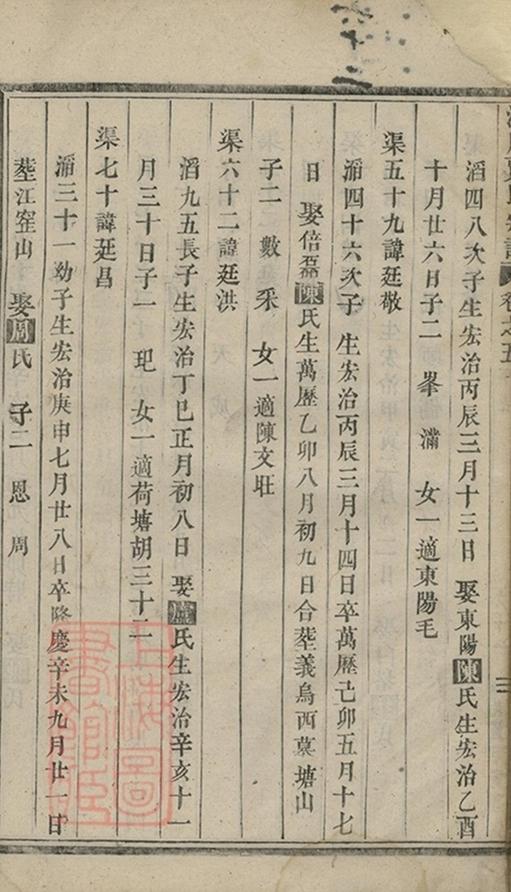 滔四八次子生宏治丙辰三月十三日 娶東陽陳氏生宏治乙酉
十月廿六日子二 峯 滿 女一適東陽毛
渠五十九諱廷敬
滔四十六次子 生宏治丙辰三月十四日卒萬歷己卯五月十七
日 娶倍磊陳氏生萬歷乙卯八月初九日合塟義烏西墓塘山
子二 數 釆 女一適陳文旺
渠六十二諱廷洪
滔九五長子生宏治丁巳正月初八日 娶盧氏生宏治辛亥十一
月三十日子一 玘 女一適荷塘胡三十二
渠七十諱廷昌
滔三十一幼子生宏治庚申七月廿八日卒隆慶辛未九月廿一日
塟江窑山 娶周氏 子二 恩 周